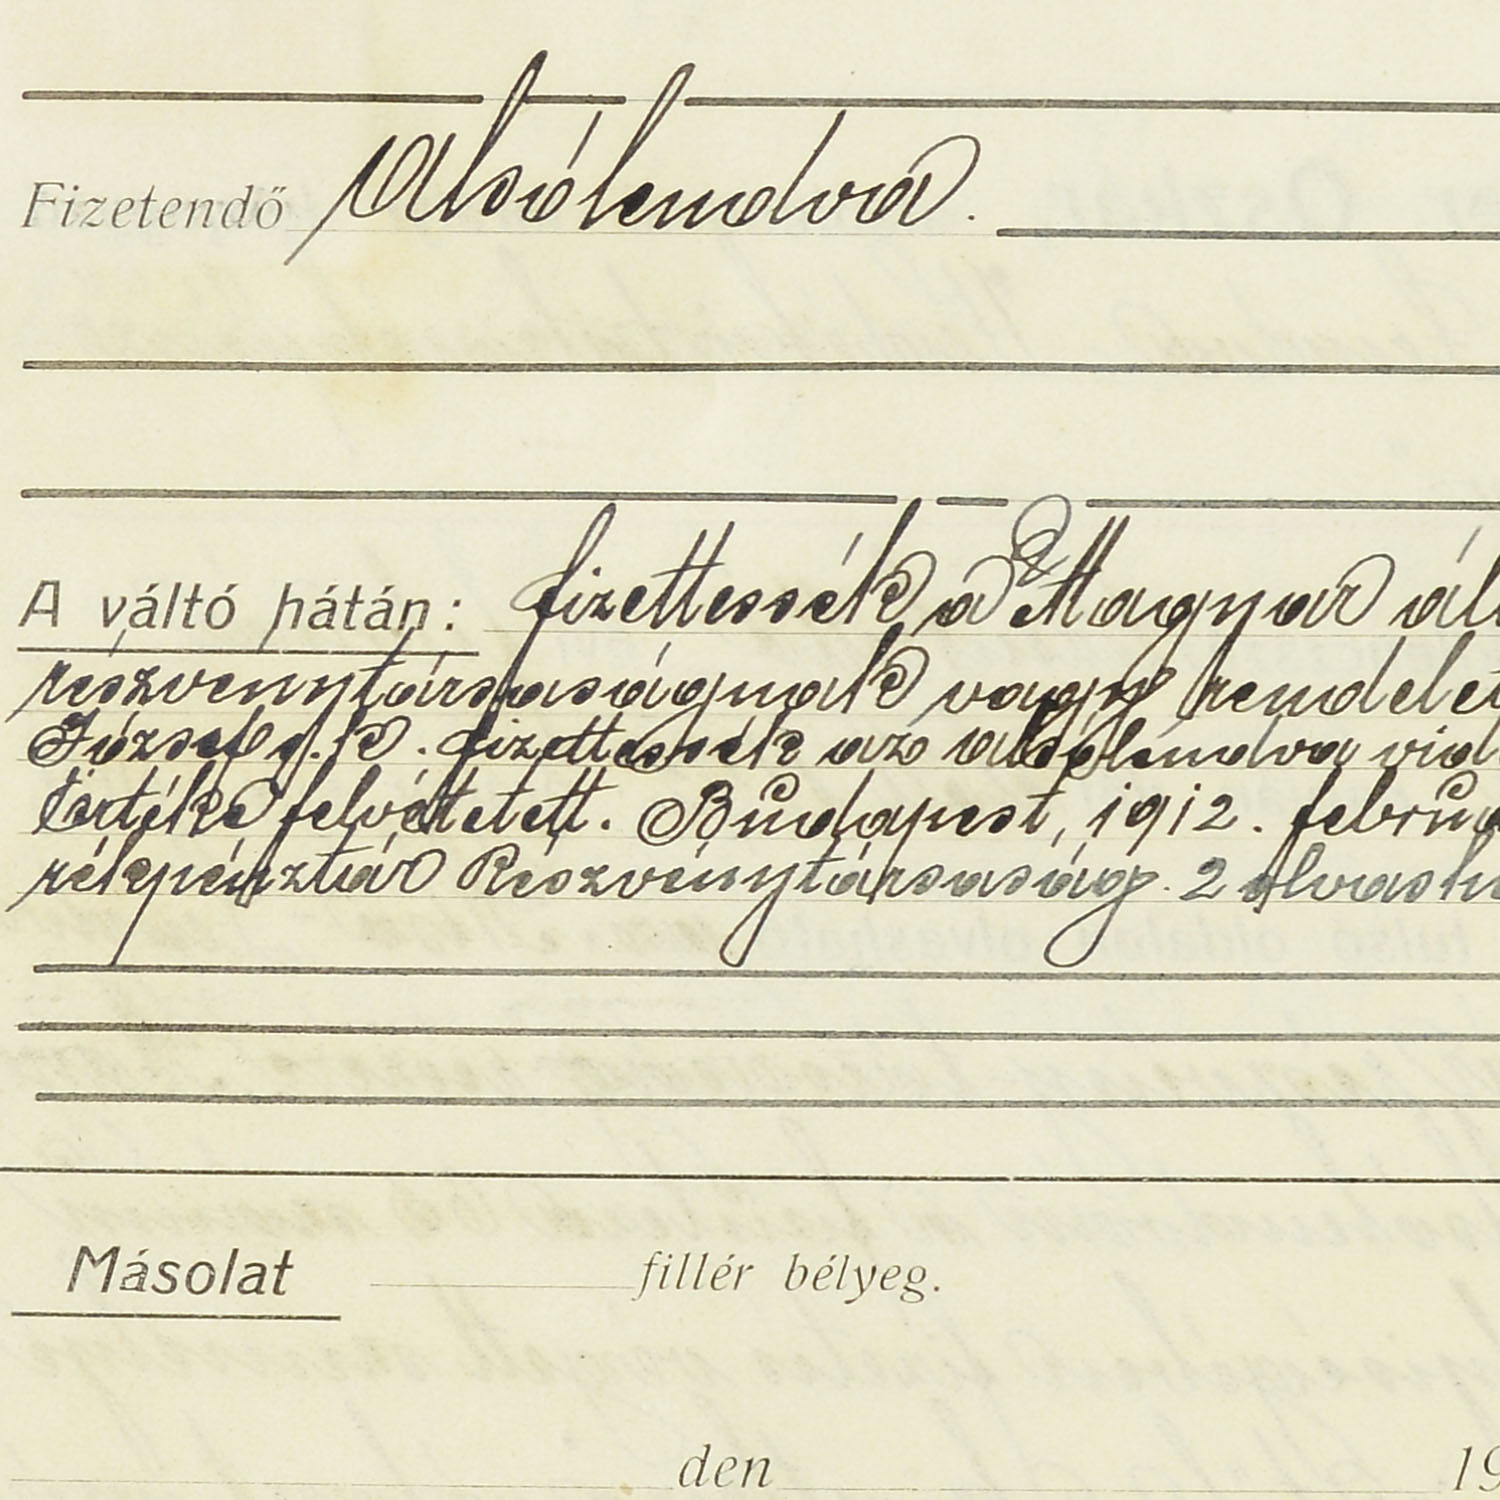 Fizetendő Alsólendva.
A váltó hátán: fizettessék a Magyar ál
részvénytársaságnak vagy rendelet
József s. k. fizettessék az alsólendva vid
Értéke felvétetett. Budapest, 1912. febru
rélepénztár Részvénytársaság. 2 olvash
Másolat fillér bélyeg.
den 19